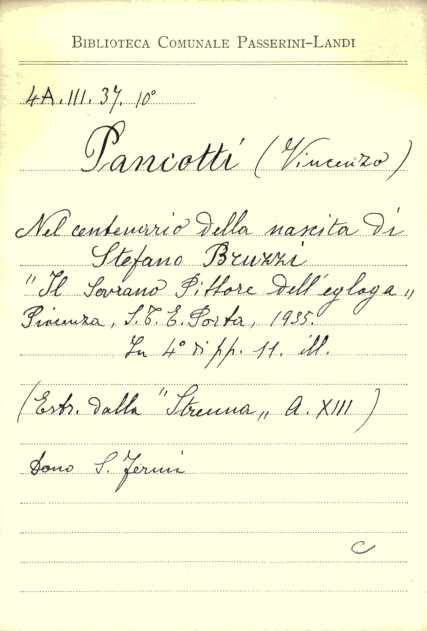 BIBLIOTECA COMUNALE PASSERINI-LANDI
4A.III.37. 10°
Pancotti (Vincenzo)
Nel centenario della nascita di
Stefano Bruzzi
"Il Sovrano Pittore dell'egloga„
Piacenza, S.T.E. Porta, 1935.
In 4° di pp. 11. ill.
(Estr. dalla "Strenna„ A. XIII)
Dono S. Fermi
C